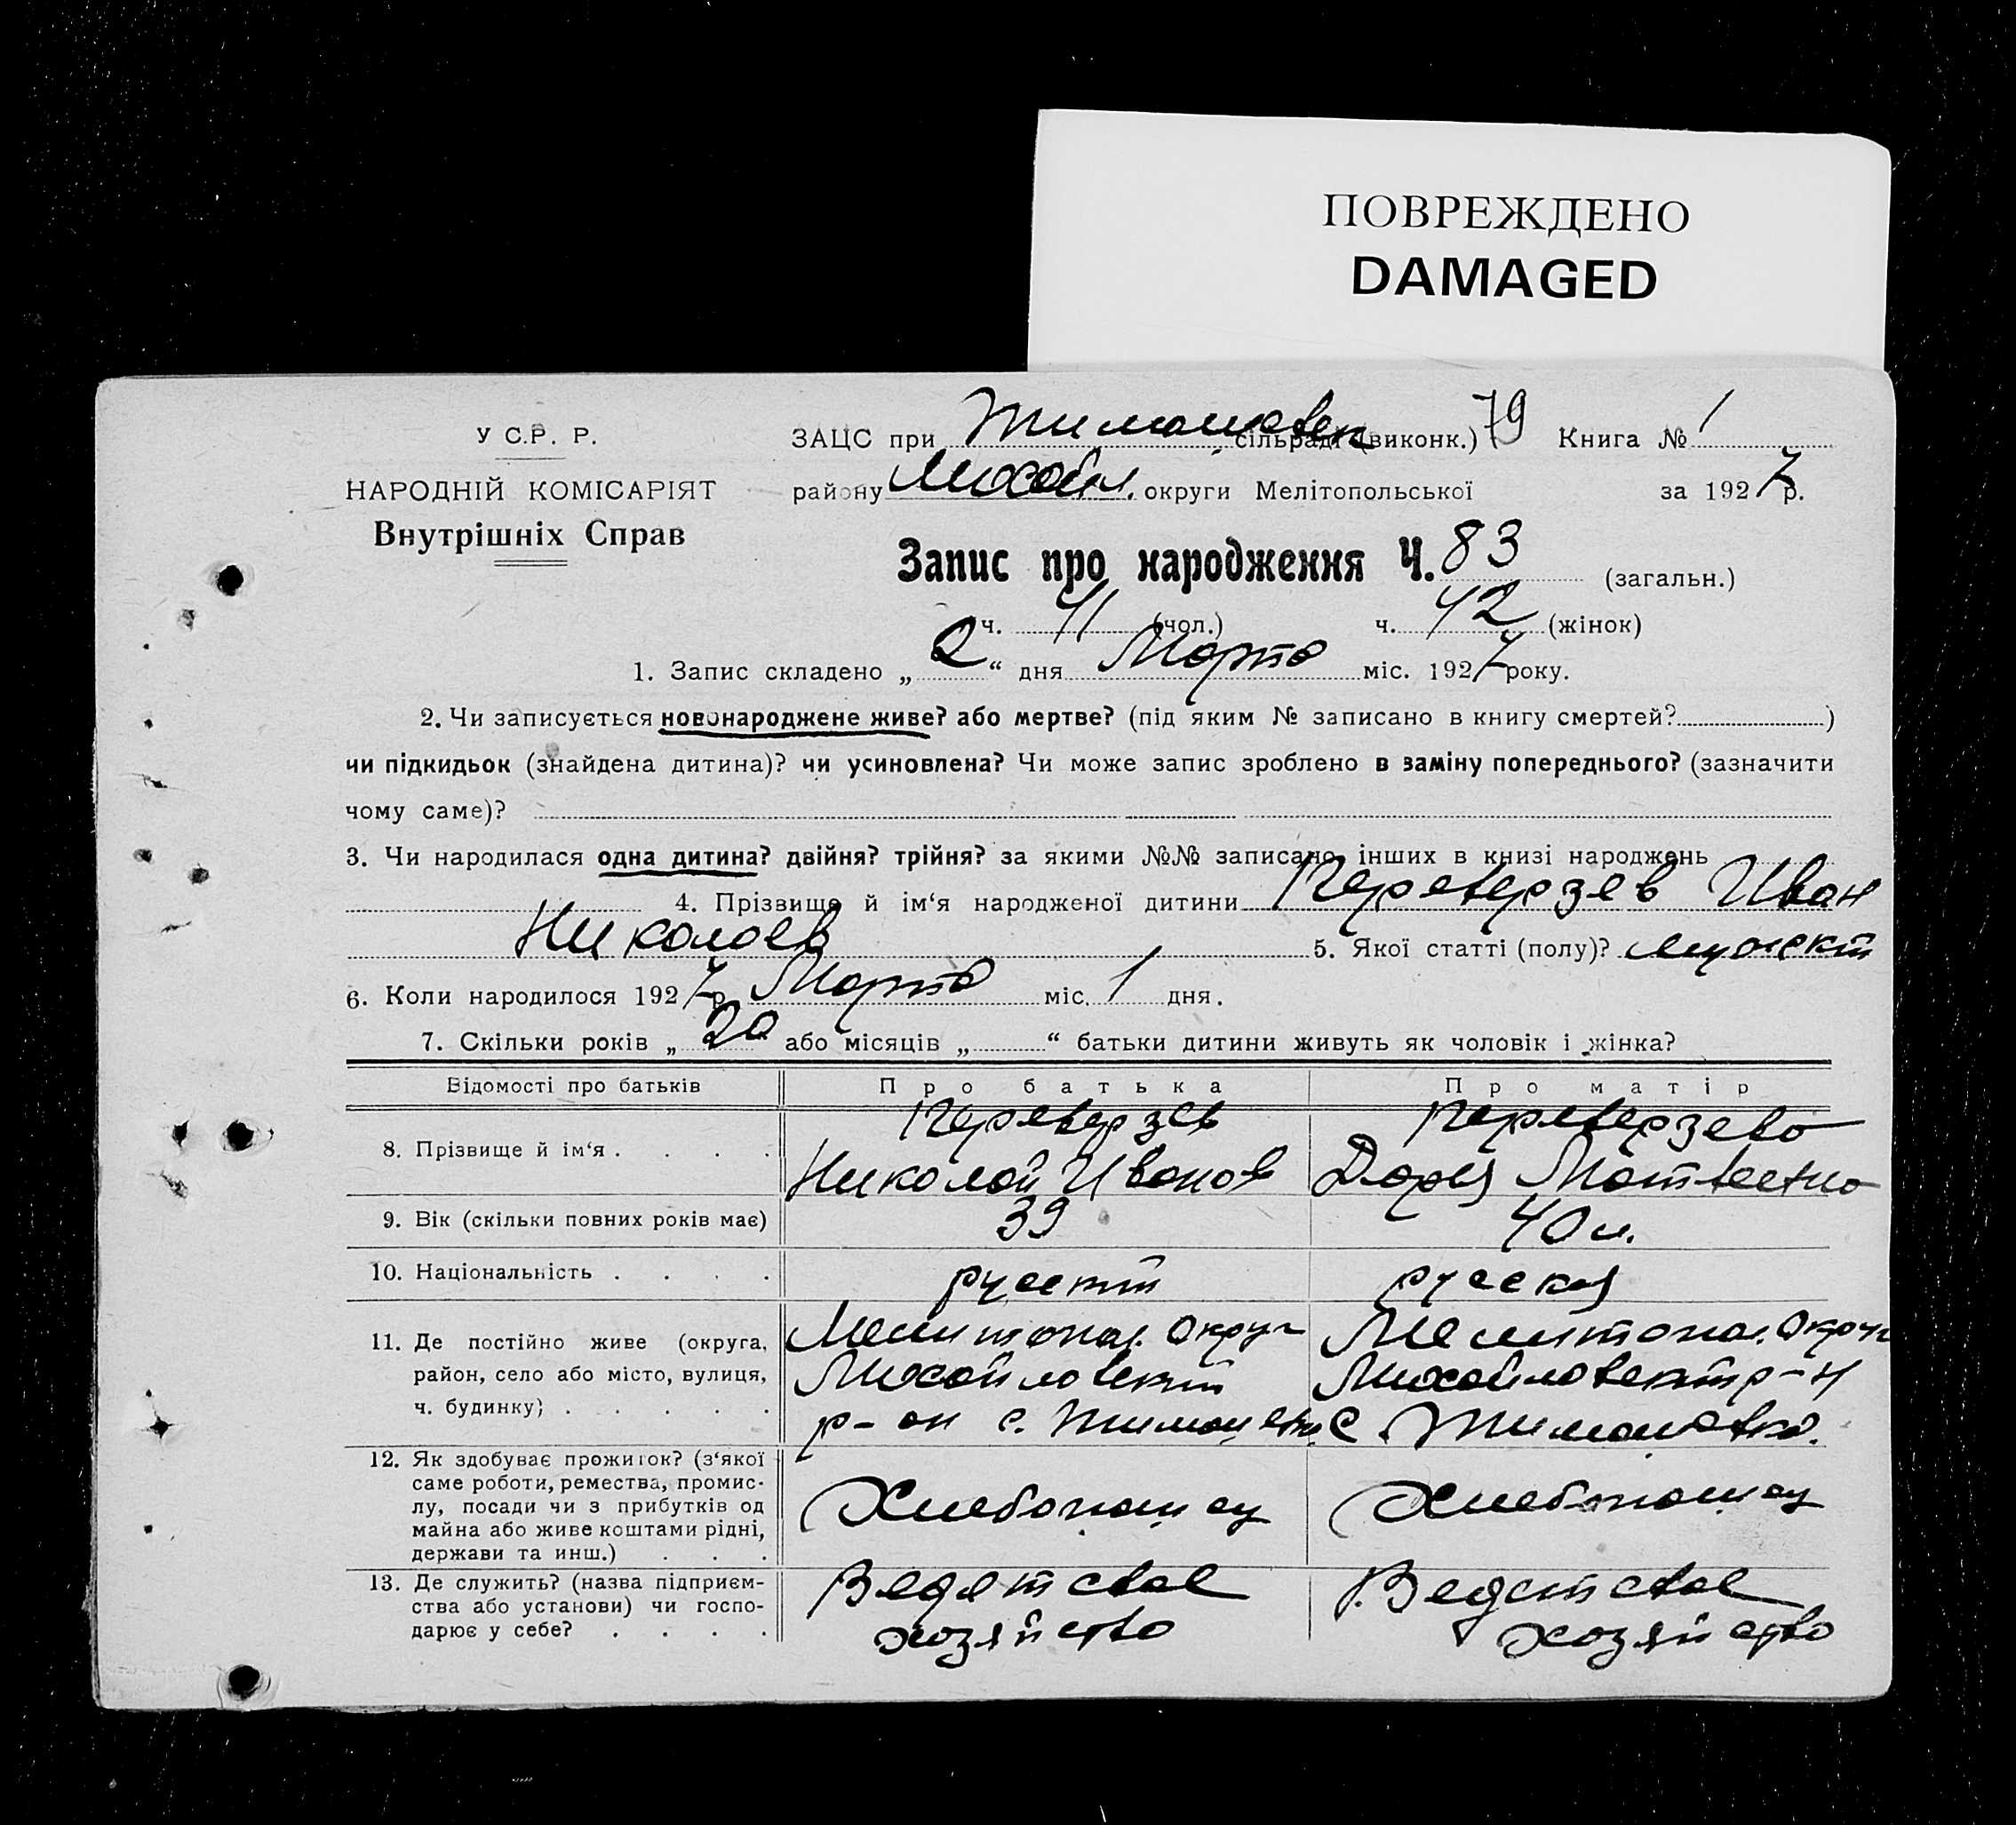 ПОВРЕЖДЕНО
DAMAGED
У С.Р. Р.
НАРОДНІЙ КОМІСАРІЯТ
Внутрішніх Справ
ЗАЦС при Тимошовск сільраді (виконк.) 79 Книга № 1
району Михайл. округи Мелітопольської за 1927 р.
Запис про народження Ч. 83 (загальн.)
ч. 41 (чол.) ч. 42 (жінок)
1. Запис складено „ 2 “ дня Марта міс. 1927 року.
2. Чи записується новонароджене живе? або мертве? (під яким № записано в книгу смертей? )
чи підкидьок (знайдена дитина)? чи усиновлена? Чи може запис зроблено в заміну попереднього? (зазначити
чому саме)?
3. Чи народилася одна дитина? двійня? трійня? за якими №№ записано інших в книзі народжень
4. Прізвище й ім‘я народженої дитини Переверзев Иван
Николаев 5. Якої статті (полу)? мужск
6. Коли народилося 1927 р. Марта міс. 1 дня.
7. Скільки років „ 20 або місяців „ “ батьки дитини живуть як чоловік і жінка?
Відомості про батьків Про батька Про матір
8. Прізвище й ім‘я . . . . Переверзев Николай Иванов Переверзева Дарья Матвеевна
9. Вік (скільки повних років має) 39 40 л.
10. Національність . . . . русский русская
11. Де постійно живе (округа, Мелитопол. Округ Мелитопол. Округ
район, село або місто, вулиця, Михайловский Михайловский р-н
ч. будинку) . . . . . р-он с. Тимошовка с. Тимошовка.
12. Як здобуває прожиток? (з‘якої
саме роботи, ремества, промис-
лу, посади чи з прибутків од Хлебопашец Хлебопашец
майна або живе коштами рідні,
держави та инш.) . . .
13. Де служить? (назва підприєм- Ведет свое Ведет свое
ства або установи) чи госпо- хозяйство хозяйство
дарює у себе? . . . .